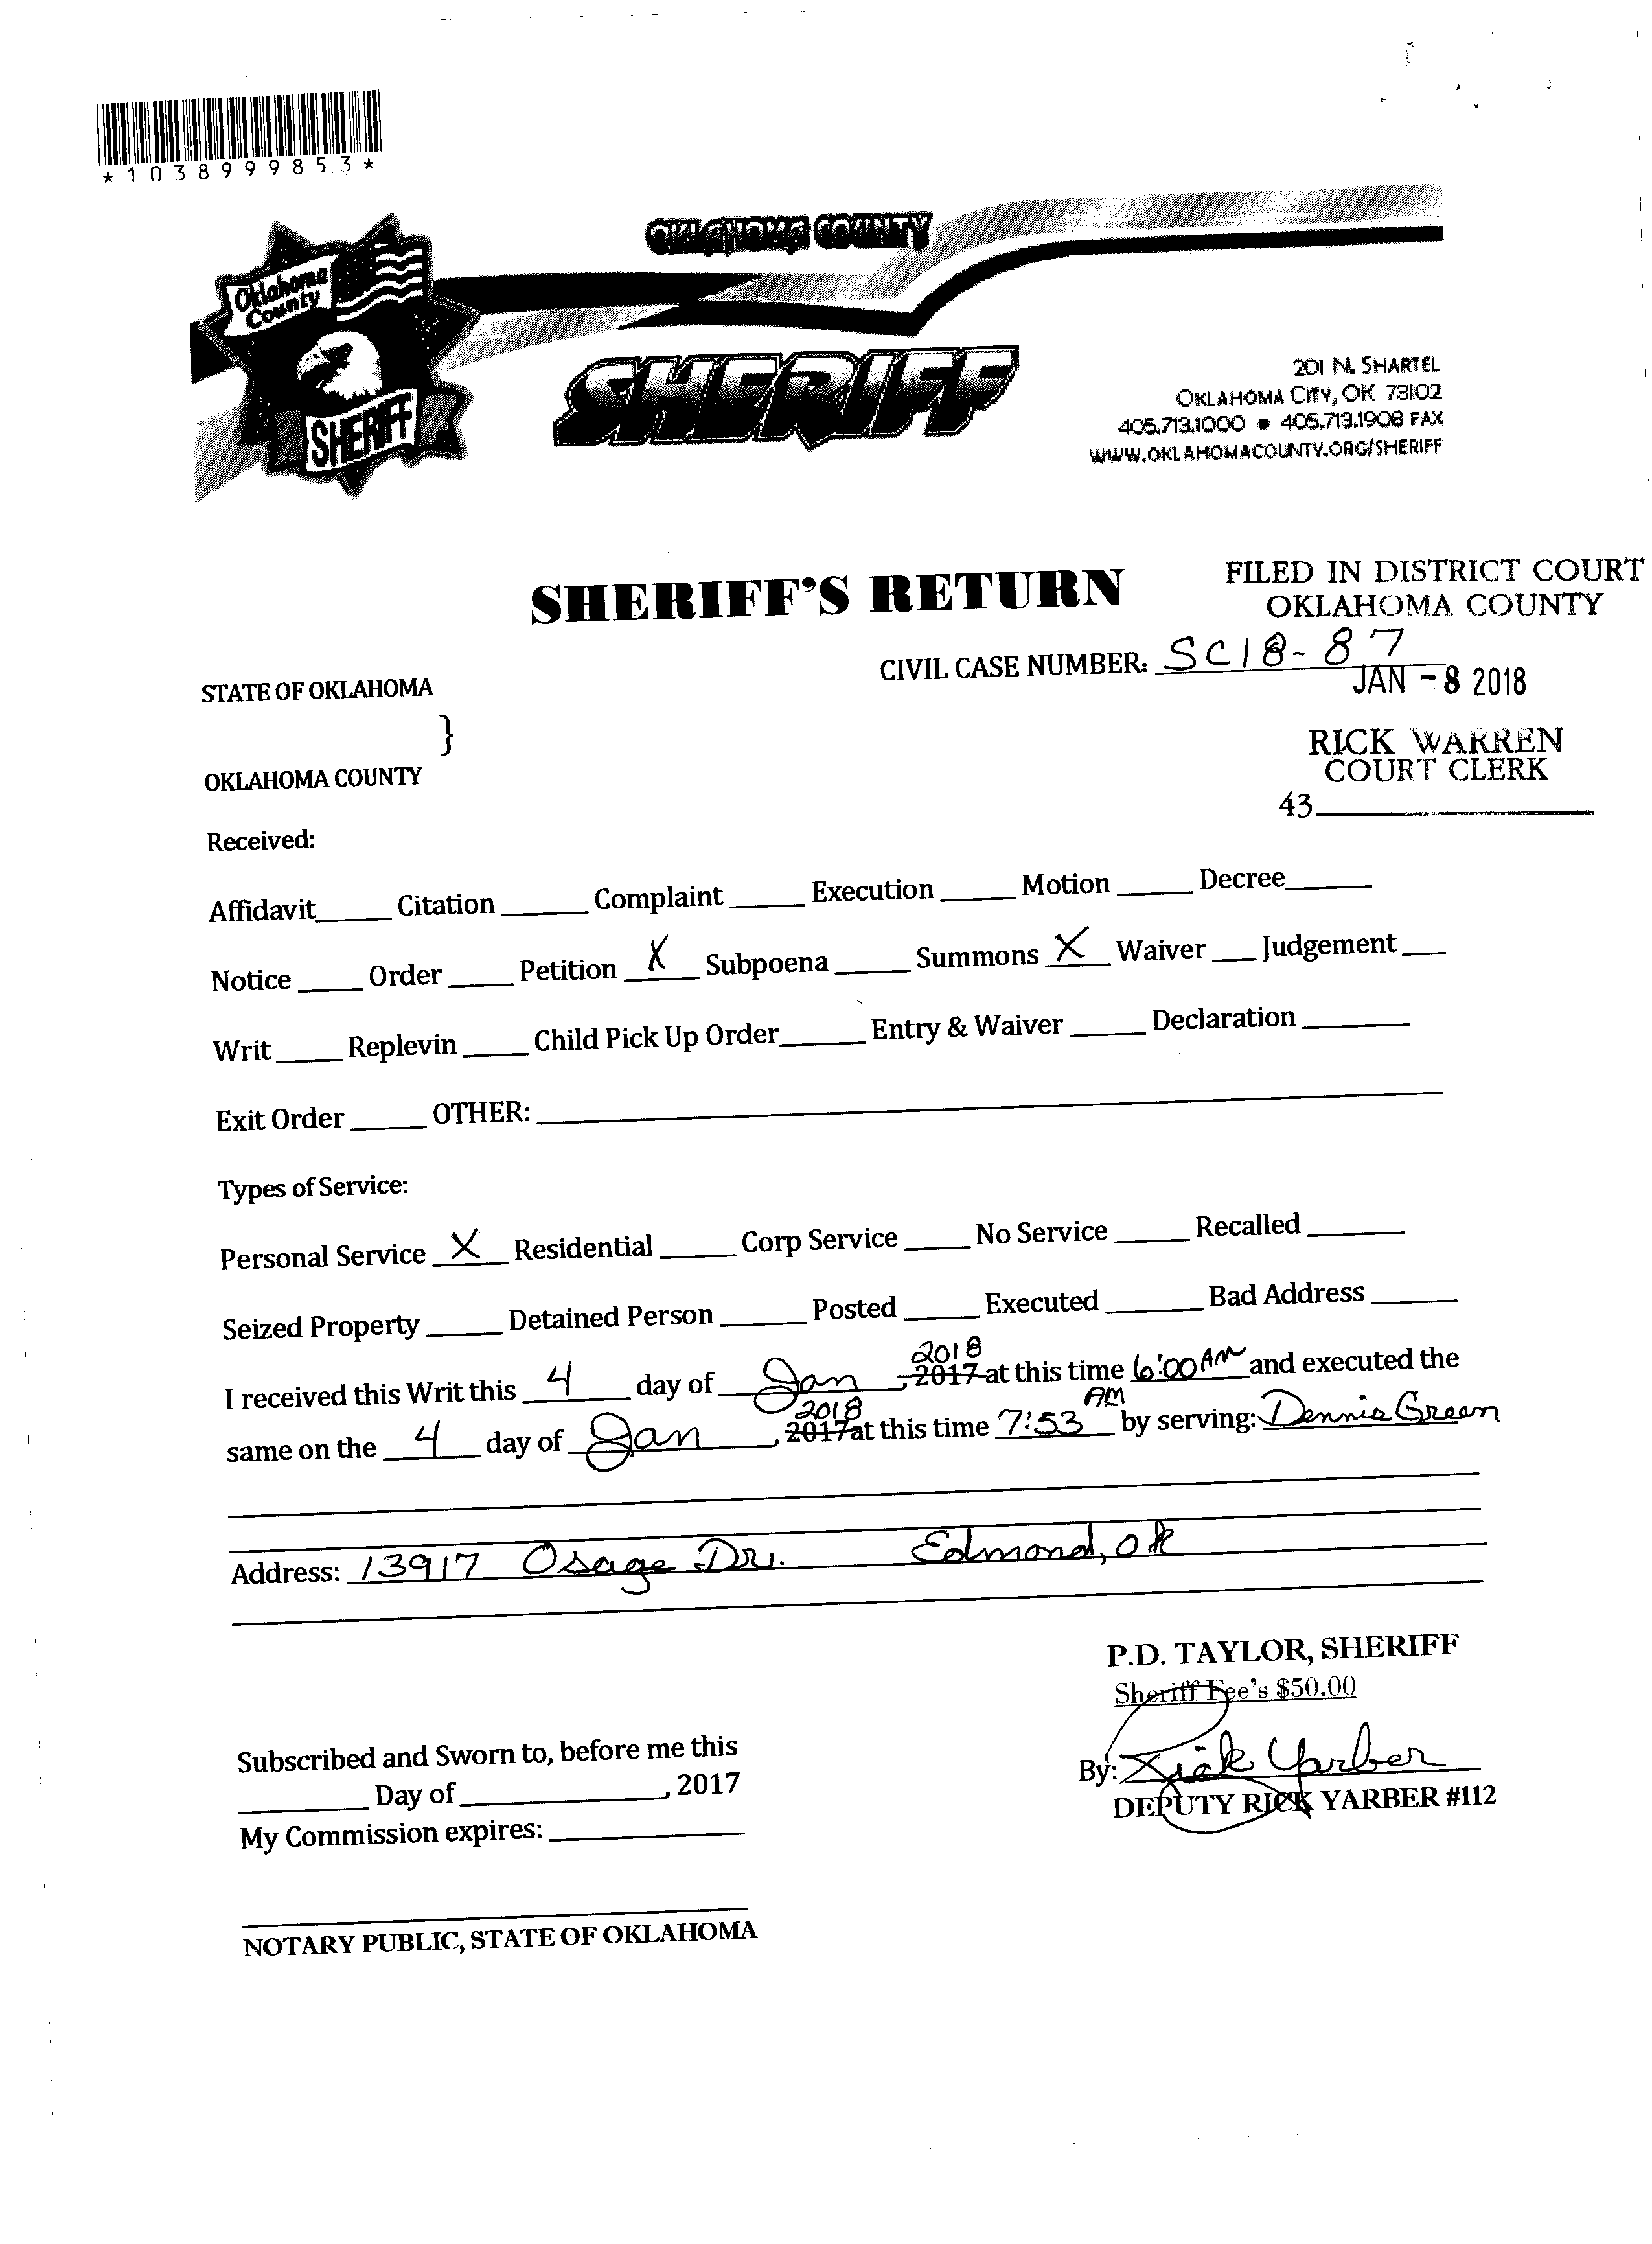 *1038999853*
OKLAHOMA COUNTY
Oklahoma
County
SHERIFF
SHERIFF
201 N. SHARTEL
OKLAHOMA CITY, OK 73102
405.713.1000 • 405.713.1908 FAX
WWW.OKLAHOMACOUNTY.ORG/SHERIFF
SHERIFF'S RETURN
FILED IN DISTRICT COURT
OKLAHOMA COUNTY
CIVIL CASE NUMBER: SC18-87
JAN -8 2018
STATE OF OKLAHOMA
}
OKLAHOMA COUNTY
RICK WARREN
COURT CLERK
43
Received:
Affidavit_____ Citation ______ Complaint _____ Execution _____ Motion _____ Decree______
Notice _____ Order _____ Petition X Subpoena _____ Summons X Waiver ___ Judgement ___
Writ _____ Replevin _____ Child Pick Up Order______ Entry & Waiver _____ Declaration _______
Exit Order _____ OTHER: ______
Types of Service:
Personal Service X Residential _____ Corp Service _____ No Service _____ Recalled ______
Seized Property _____ Detained Person _____ Posted _____ Executed ______ Bad Address ______
I received this Writ this 4 day of Jan, 2017 2018 at this time 6:00 AM and executed the
same on the 4 day of Jan, 2017 2018 at this time 7:53 AM by serving: Dennis Green
Address: 13917 Osage Dr. Edmond, OK
P.D. TAYLOR, SHERIFF
Sheriff Fee's $50.00
By: Rick Yarber
DEPUTY RICK YARBER #112
Subscribed and Sworn to, before me this
________ Day of ____________, 2017
My Commission expires: ____________
NOTARY PUBLIC, STATE OF OKLAHOMA